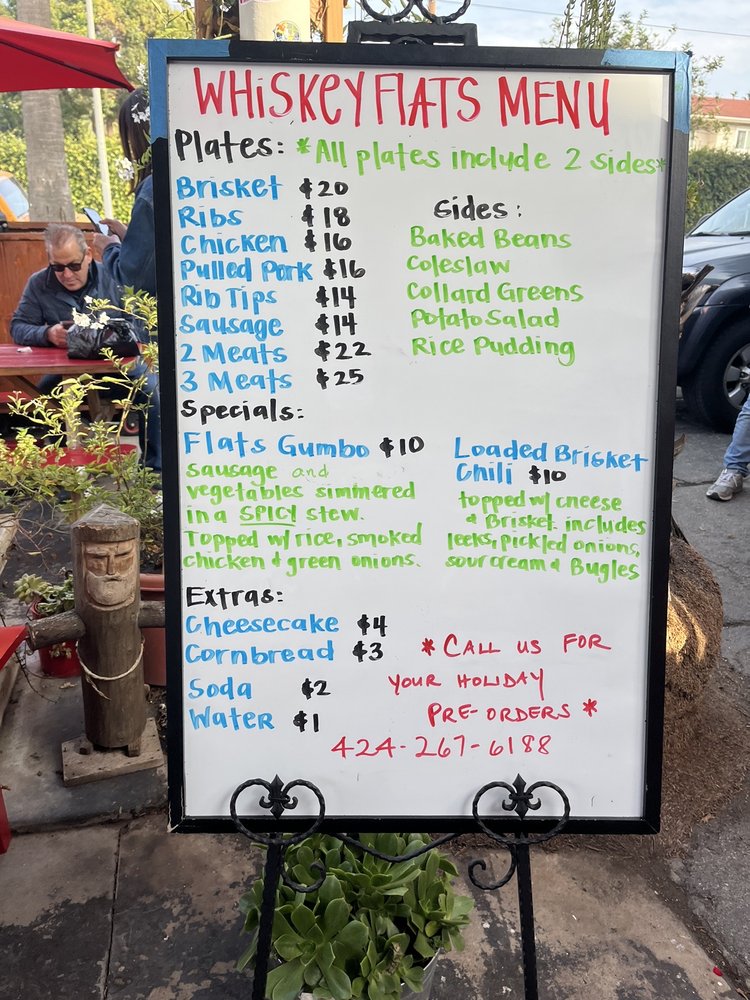 WHISKEY FLATS MENU
Plates: *All plates include 2 sides*
Brisket $20
Ribs $18
Chicken $16
Pulled Pork $16
Rib Tips $14
Sausage $14
2 Meats $22
3 Meats $25
Sides:
Baked Beans
Coleslaw
Collard Greens
Potato Salad
Rice Pudding
Specials:
Flats Gumbo $10
sausage and
vegetables simmered
in a SPICY stew.
Topped w/ rice, smoked
chicken & green onions.
Loaded Brisket
Chili $10
topped w/ cheese
& Brisket. includes
leeks, pickled onions,
sour cream & Bugles
Extras:
Cheesecake $4
Cornbread $3
Soda $2
Water $1
*CALL US FOR
YOUR HOLIDAY
PRE-ORDERS*
424-267-6188